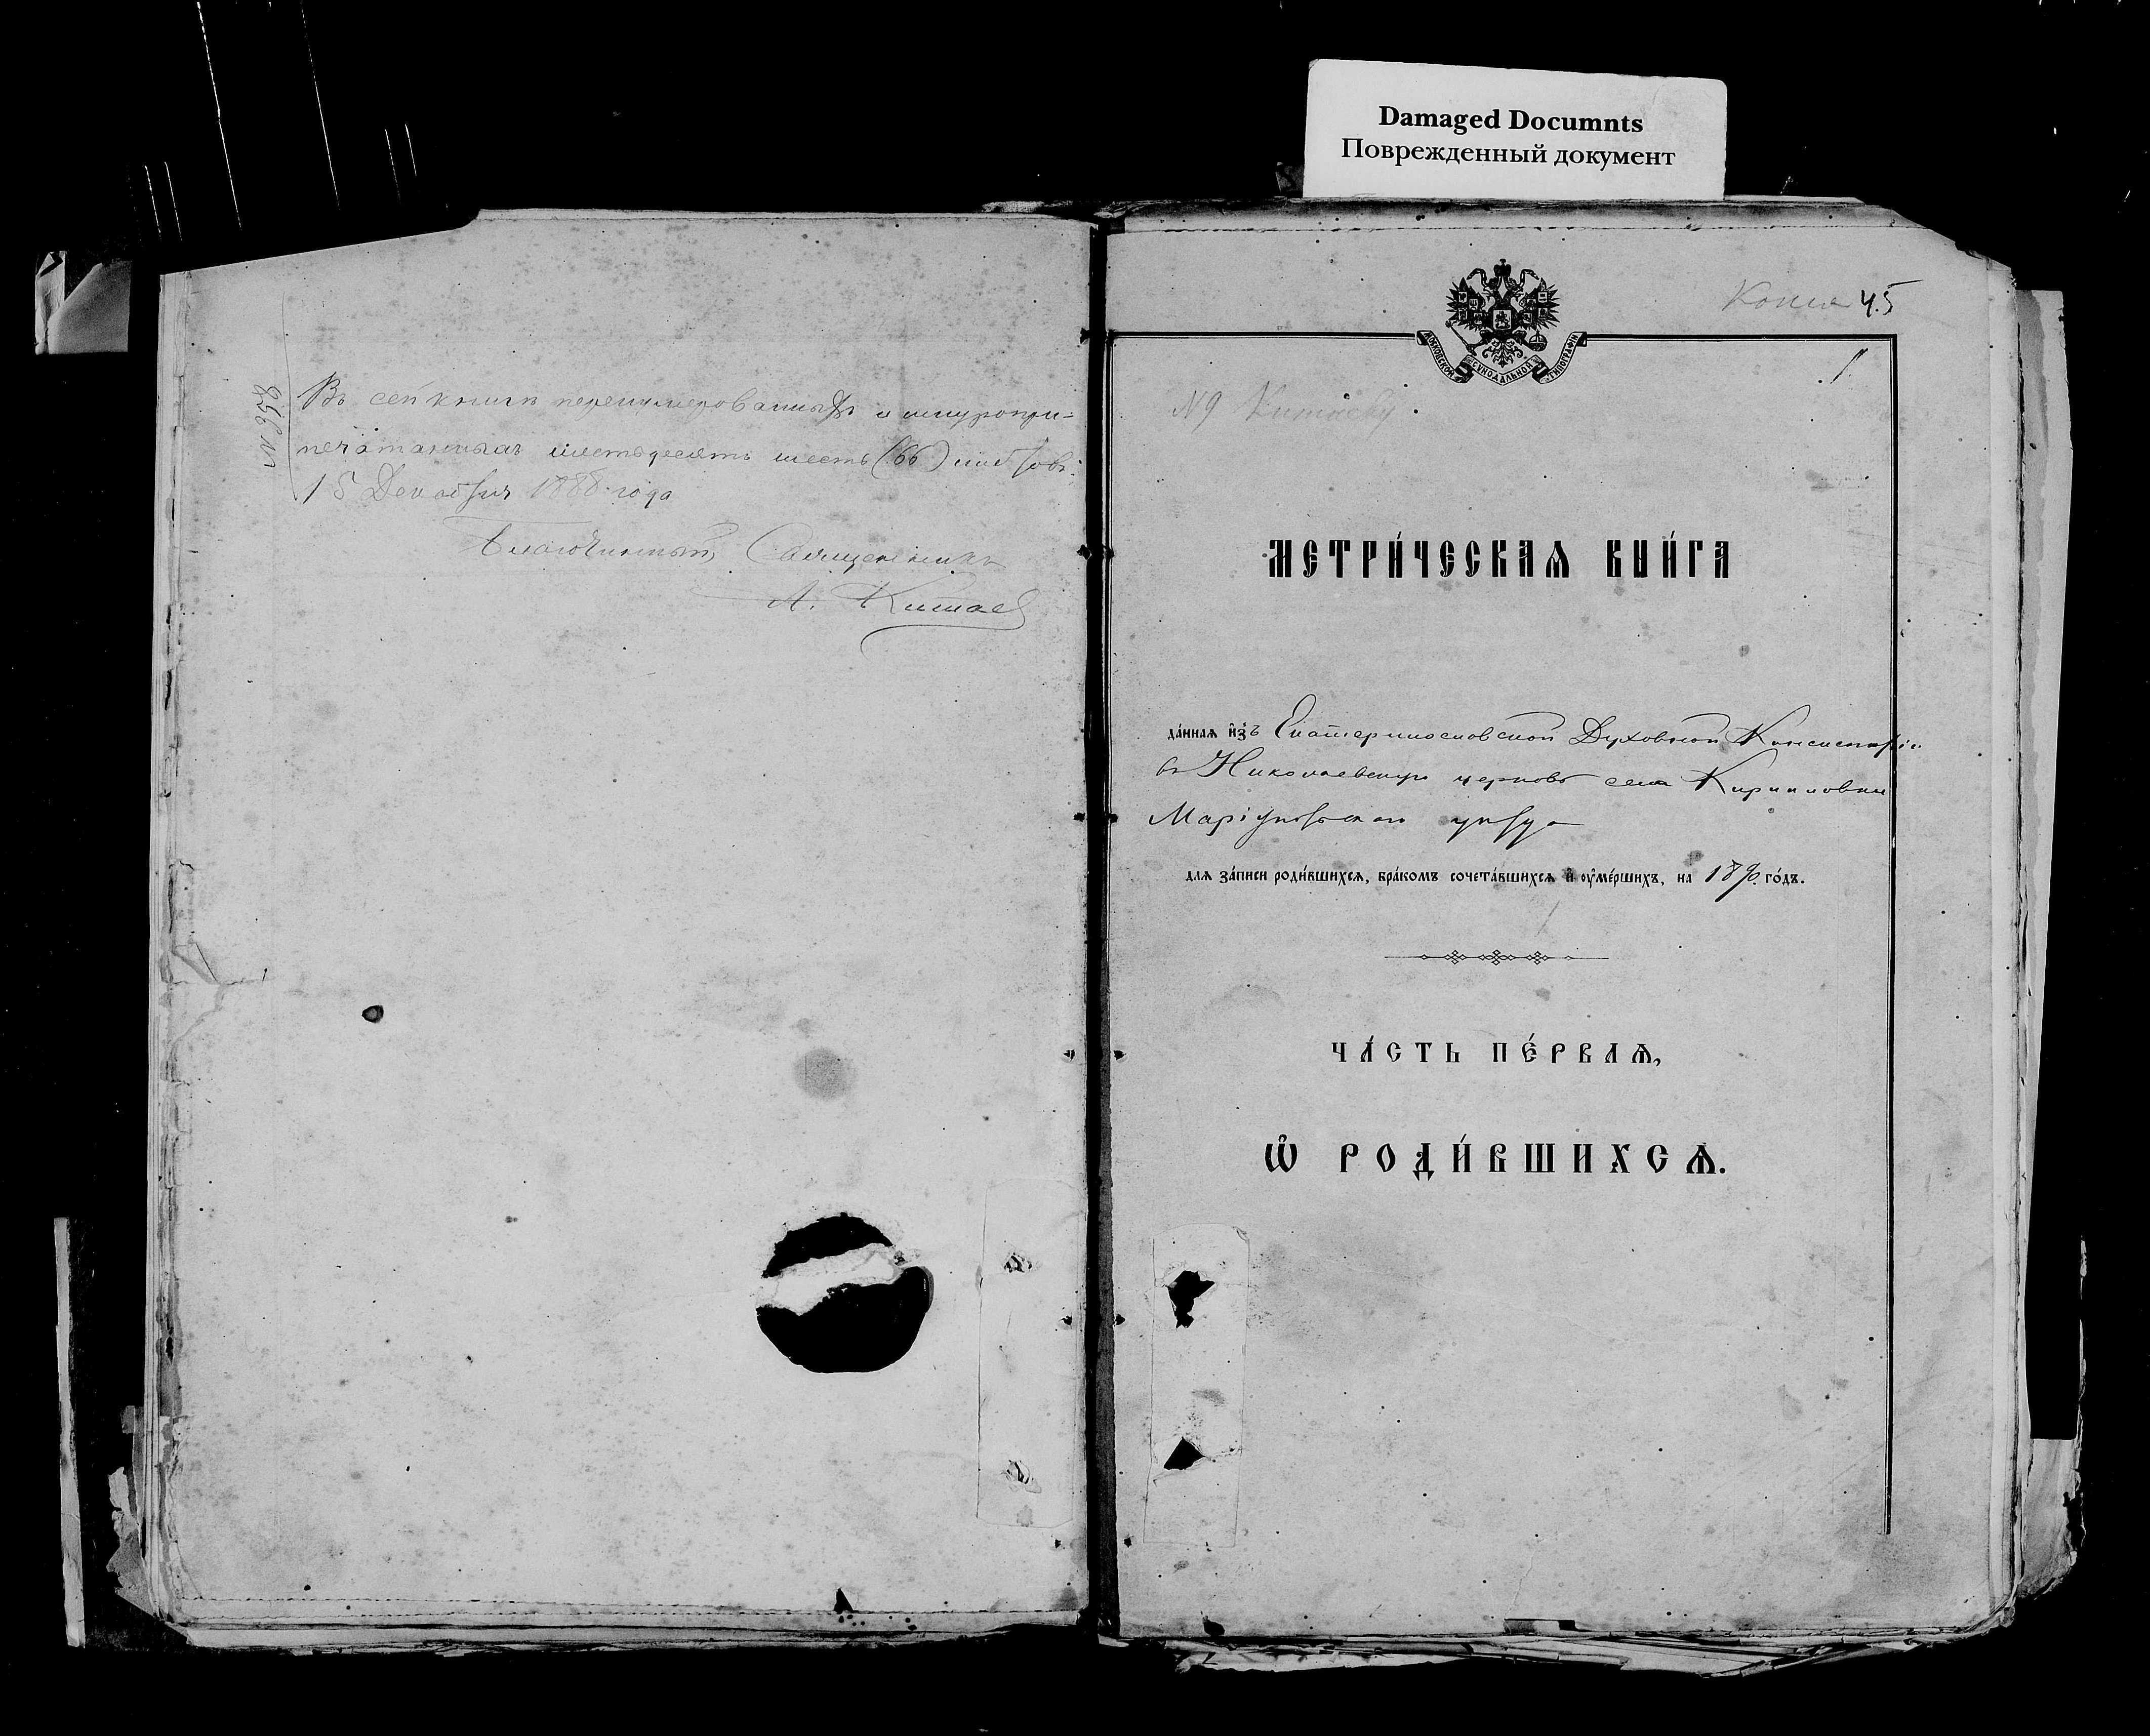 Damaged Documnts
Поврежденный документ
Въ сей книгѣ перенумерованныхъ и шнуропри-
печатанныхъ шестьдесятъ шесть (66) листовъ.
15 Декабря 1888 года
Благочинный, Священникъ
А. Китаев
Копия Ч.5
МОСКОВСКОЙ СѴНОДАЛЬНОЙ ТИПОГРАФІИ
1
№9 Китаеву
МЕТРИ́ЧЕСКАѦ КНИ́ГА
да́ннаѧ и҆зъ Екатеринославской Духовной Консисторіи
въ Николаевскую церковь села Кирилловки
Маріупольскаго уѣзда
длѧ за́писи роди́вшихсѧ, бра́комъ сочета́вшихсѧ и҆ оу҆ме́ршихъ, на 1890 го́дъ.
ЧА́СТЬ ПЕ́РВАѦ,
Ѡ҆ РОДИ́ВШИХСѦ.